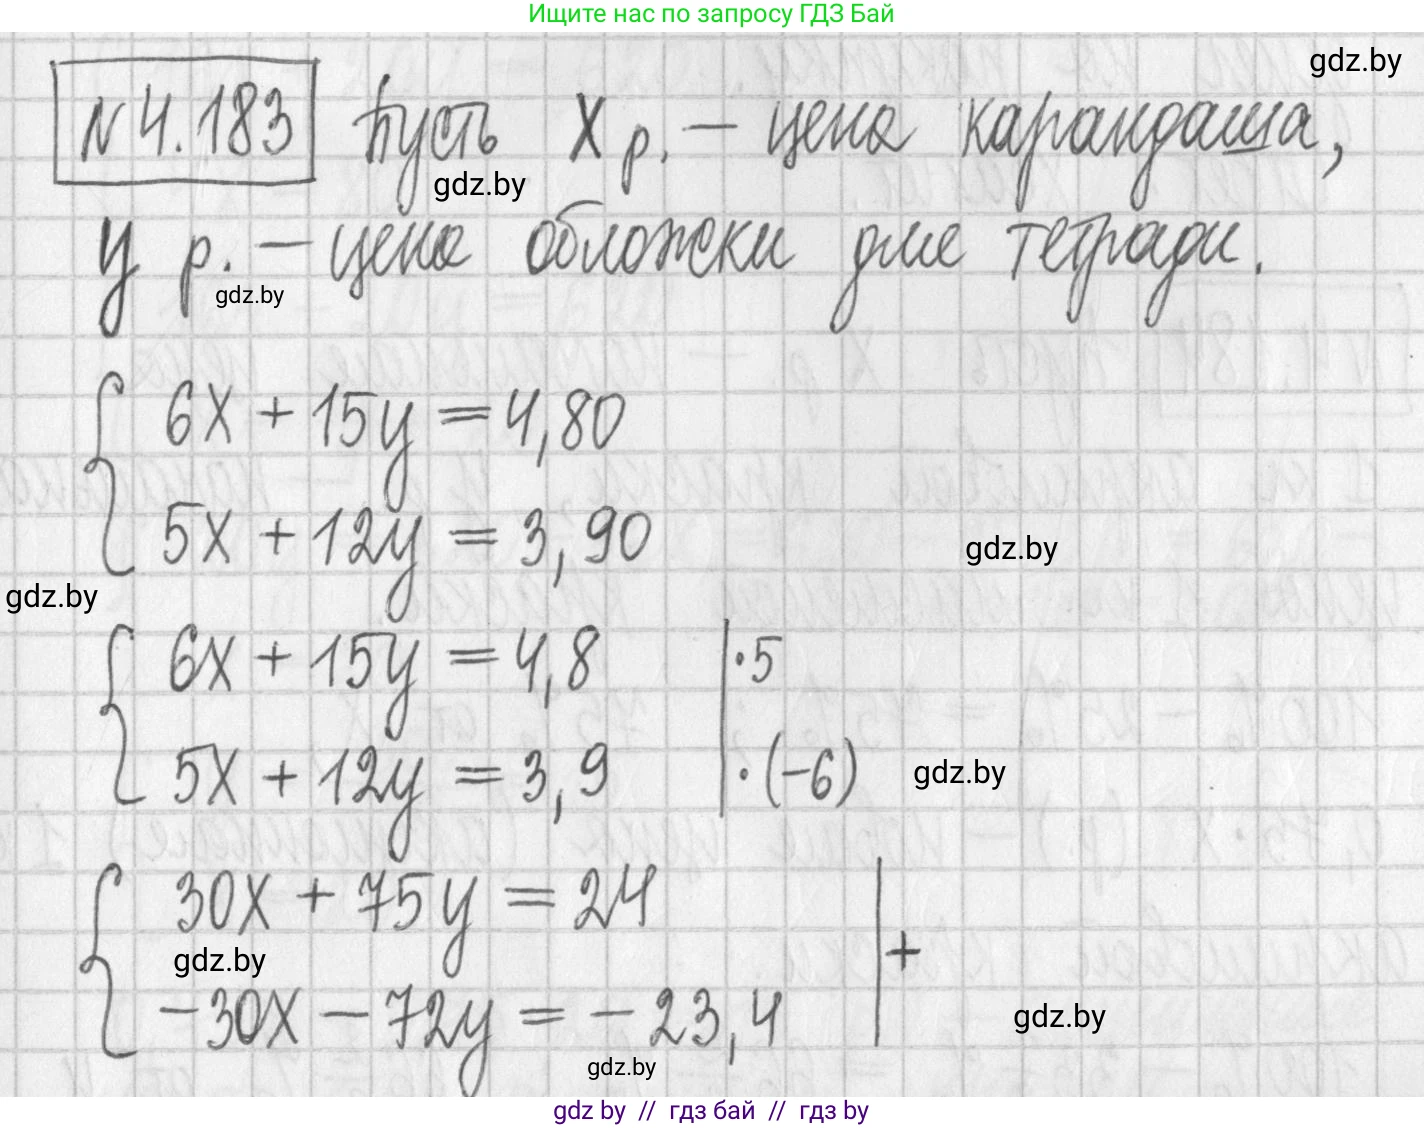 Ищите нас по запросу ГДЗ Бай
gdz.by
№4.183 Пусть x р. – цена карандаша,
gdz.by
y р. – цена обложки для тетради.
gdz.by
6x + 15y = 4,80
5x + 12y = 3,90
gdz.by
gdz.by
6x + 15y = 4,8 | ·5
5x + 12y = 3,9 | ·(-6)
gdz.by
30x + 75y = 24
gdz.by
+
-30x - 72y = -23,4
gdz.by
gdz.by
gdz by // гдз бай // гдз by